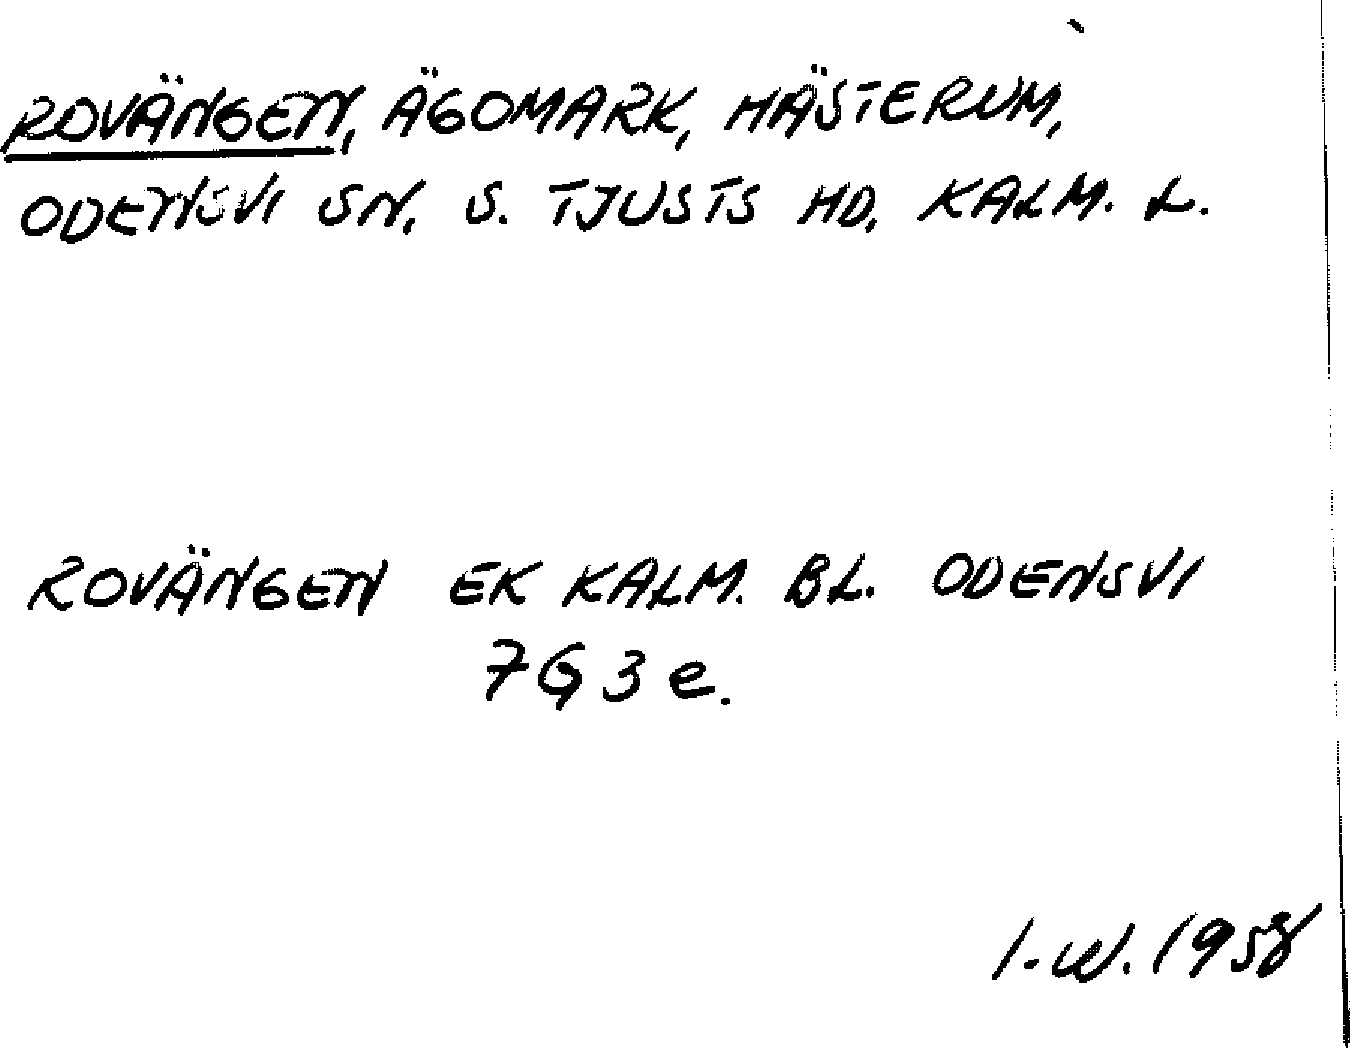 ROVÄNGEN, ÄGOMARK, MÄSTERUM,
ODENSVI SN. S. TJUSTS HD. KALM. L.
ROVÄNGEN EK KALM. BL. ODENSVI
7G3e.
I.W. 1958